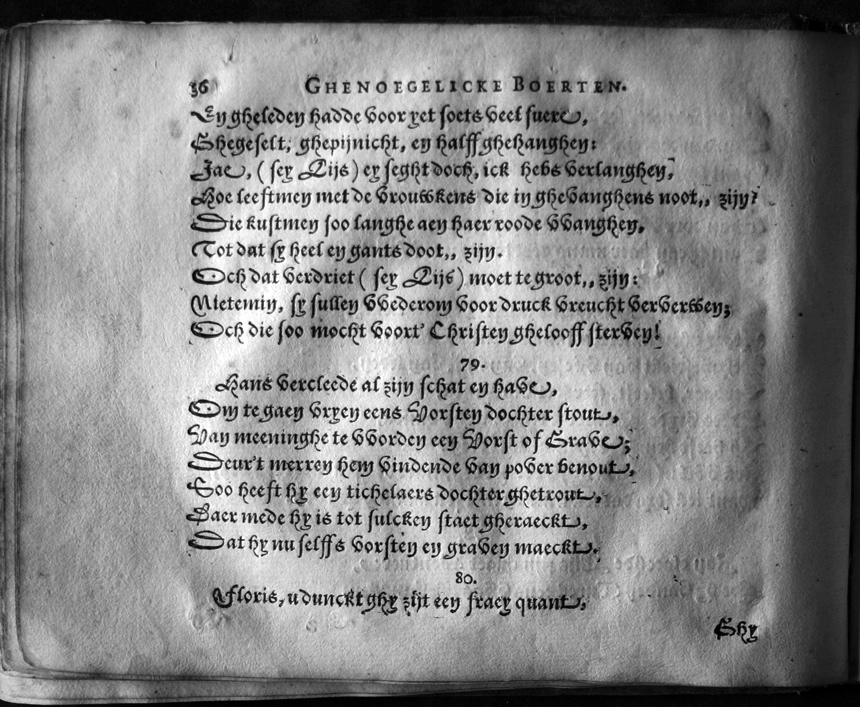 36 GHENOEGELICKE BOERTEN.
En gheleden hadde voor yet soets veel suere,
Ghegeselt, ghepijnicht, en half ghehanghen:
Jae, (sey Lijs) ey seght doch, ick hebs verlanghen,
Hoe leeftmen met de vrouwkens die in ghevanghens noot,, zijn?
Die kustmen soo langhe aen haer roode vvanghen,
Tot dat sy heel en gants doot,, zijn.
Och dat verdriet (sey Lijs) moet te groot,, zijn:
Nietemin, sy sullen vvederom voor druck vreucht verwerven;
Och die soo mocht voort' Christen ghelooff sterven!
79.
Hans vercleede al zijn schat en have,
Om te gaen vryen eens Vorsten dochter stout,
Van meeninghe te vvorden een Vorst of Grave;
Deur't merren hem vindende van pover benout,
Soo heeft hy een tichelaers dochter ghetrout,
Daer mede hy is tot sulcken staet gheraeckt,
Dat hy nu selffs vorsten en graven maeckt.
80.
Floris, u dunckt ghy zijt een fraey quant,
Ghy